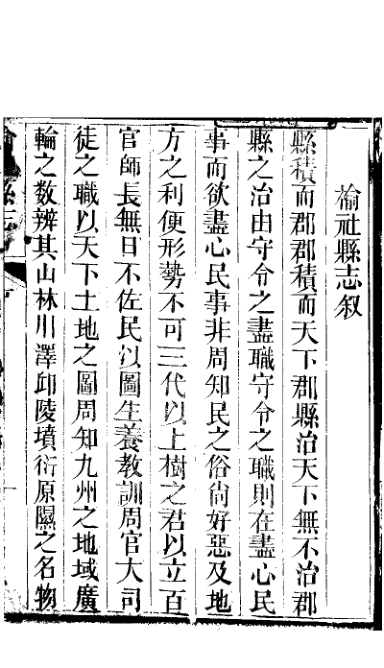 榆社縣志叙
縣積而郡郡積而天下郡縣治天下無不治郡
縣之治由守令之盡職守令之職則在盡心民
事而欲盡心民事非周知民之俗尙好惡及地
方之利便形勢不可三代以上樹之君以立百
官師長無日不佐民以圖生養教訓周官大司
徒之職以天下土地之圖周知九州之地域廣
輪之数辨其山林川澤邱陵墳衍原隰之名物